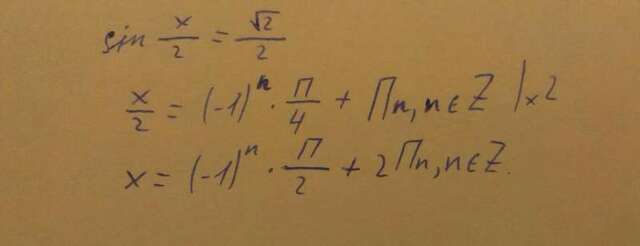 sin x/2 = √2/2
x/2 = (-1)ⁿ · П/4 + Пn, n ∈ Z |×2
x = (-1)ⁿ · П/2 + 2Пn, n ∈ Z.